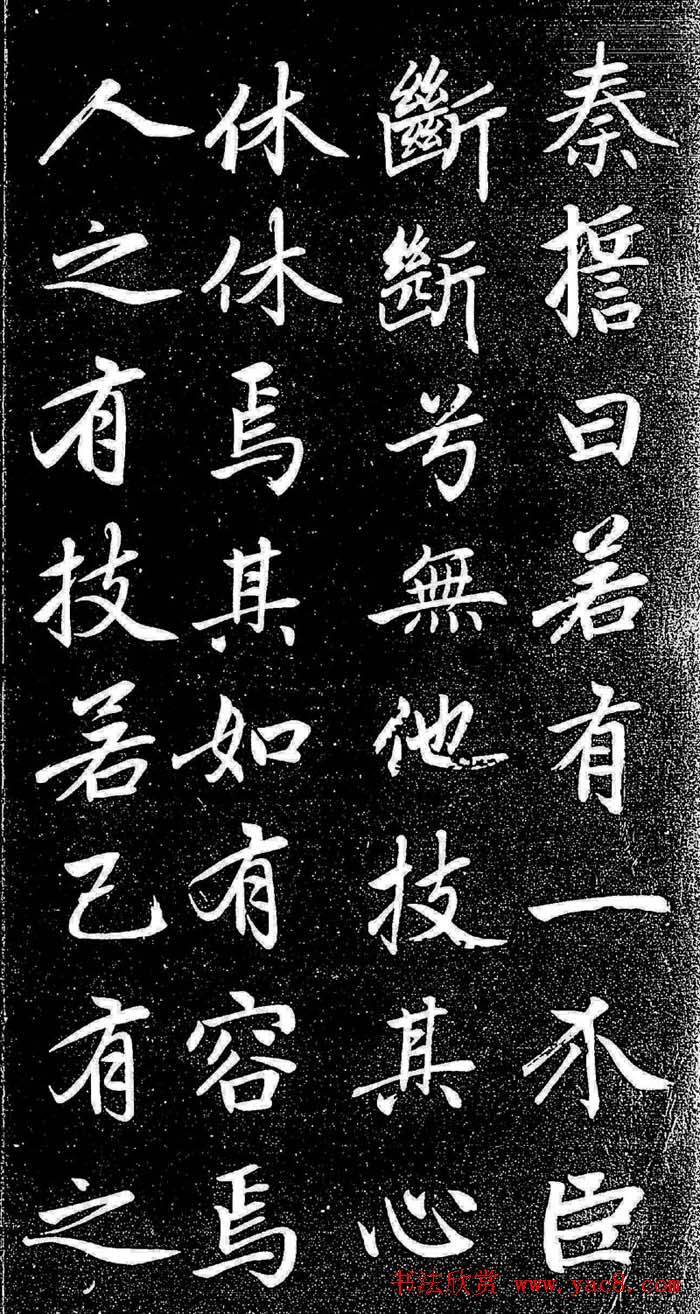 秦誓曰若有一介臣
斷斷兮無他技其心
休休焉其如有容焉
人之有技若己有之
书法欣赏 www.yac8.com